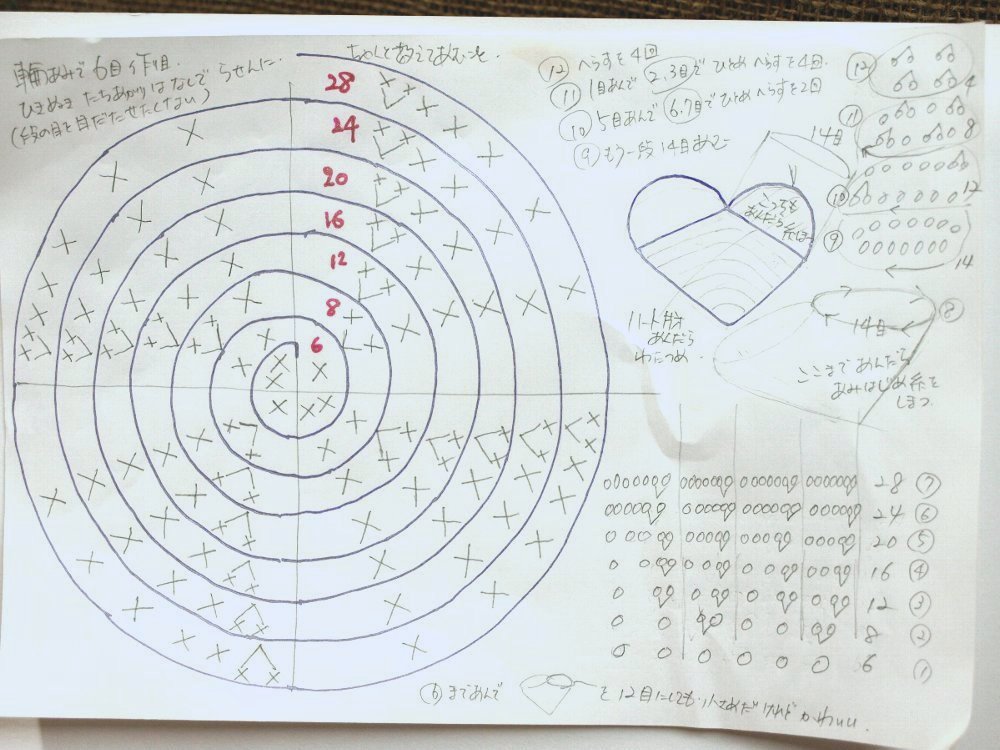 輪あみで6目作り目.
ひきぬき たちあがりはなしで らせんに.
(段の目を目だたせたくない)
ちゃんと教えてあみーを.
28
24
20
16
12
8
6
⑫ へらすを4回
⑪ 1目あんで 2,3目で ひとめ へらすを4回.
⑩ 5目あんで 6,7目で ひとめ へらすを2回
⑨ もう一段 14目あむ
14目
⑫
4
⑪
8
⑩
12
⑨
14
こっちも
あんだら
糸しまつ
ハート片方
あんだら
わたつめ.
⑧
14目
ここまで あんだら
あみはじめ糸を
しまつ
28 ⑦
24 ⑥
20 ⑤
16 ④
12 ③
8 ②
6 ①
⑥ まであんで
を 12目にしても 小さめだけど かわいい.